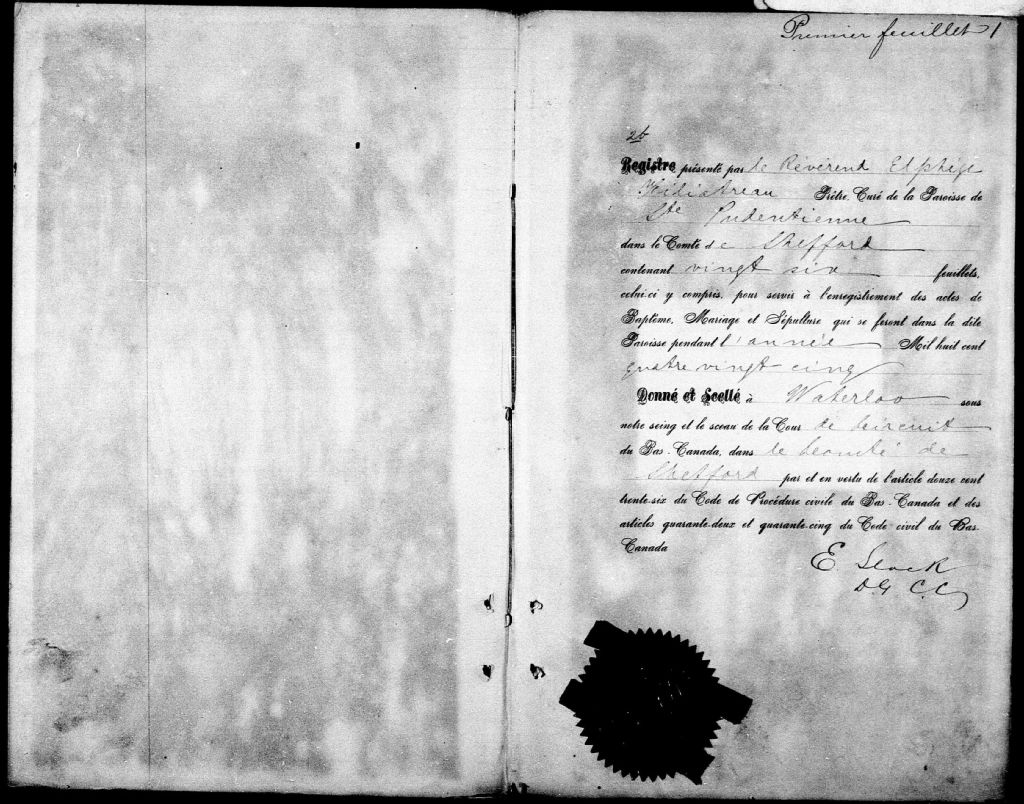 Premier feuillet 1
2t
Registre présenté par le Révérend Elphège
Prêtre, Curé de la Paroisse de
Ste Pudentienne
dans le Comté de Shefford
contenant vingt six feuillets,
celui-ci y compris, pour servir à l'enregistrement des actes de
Baptême, Mariage et Sépulture qui se feront dans la dite
Paroisse pendant l'année Mil huit cent
quatre vingt cinq
Donné et Scellé à Waterloo sous
notre seing et le sceau de la Cour de Circuit
du Bas-Canada, dans le Comté de
Shefford par et en vertu de l'article douze cent
trente-six du Code de Procédure civile du Bas-Canada et des
articles quarante-deux et quarante-cinq du Code civil du Bas-
Canada
E. Slack
D.G C.C